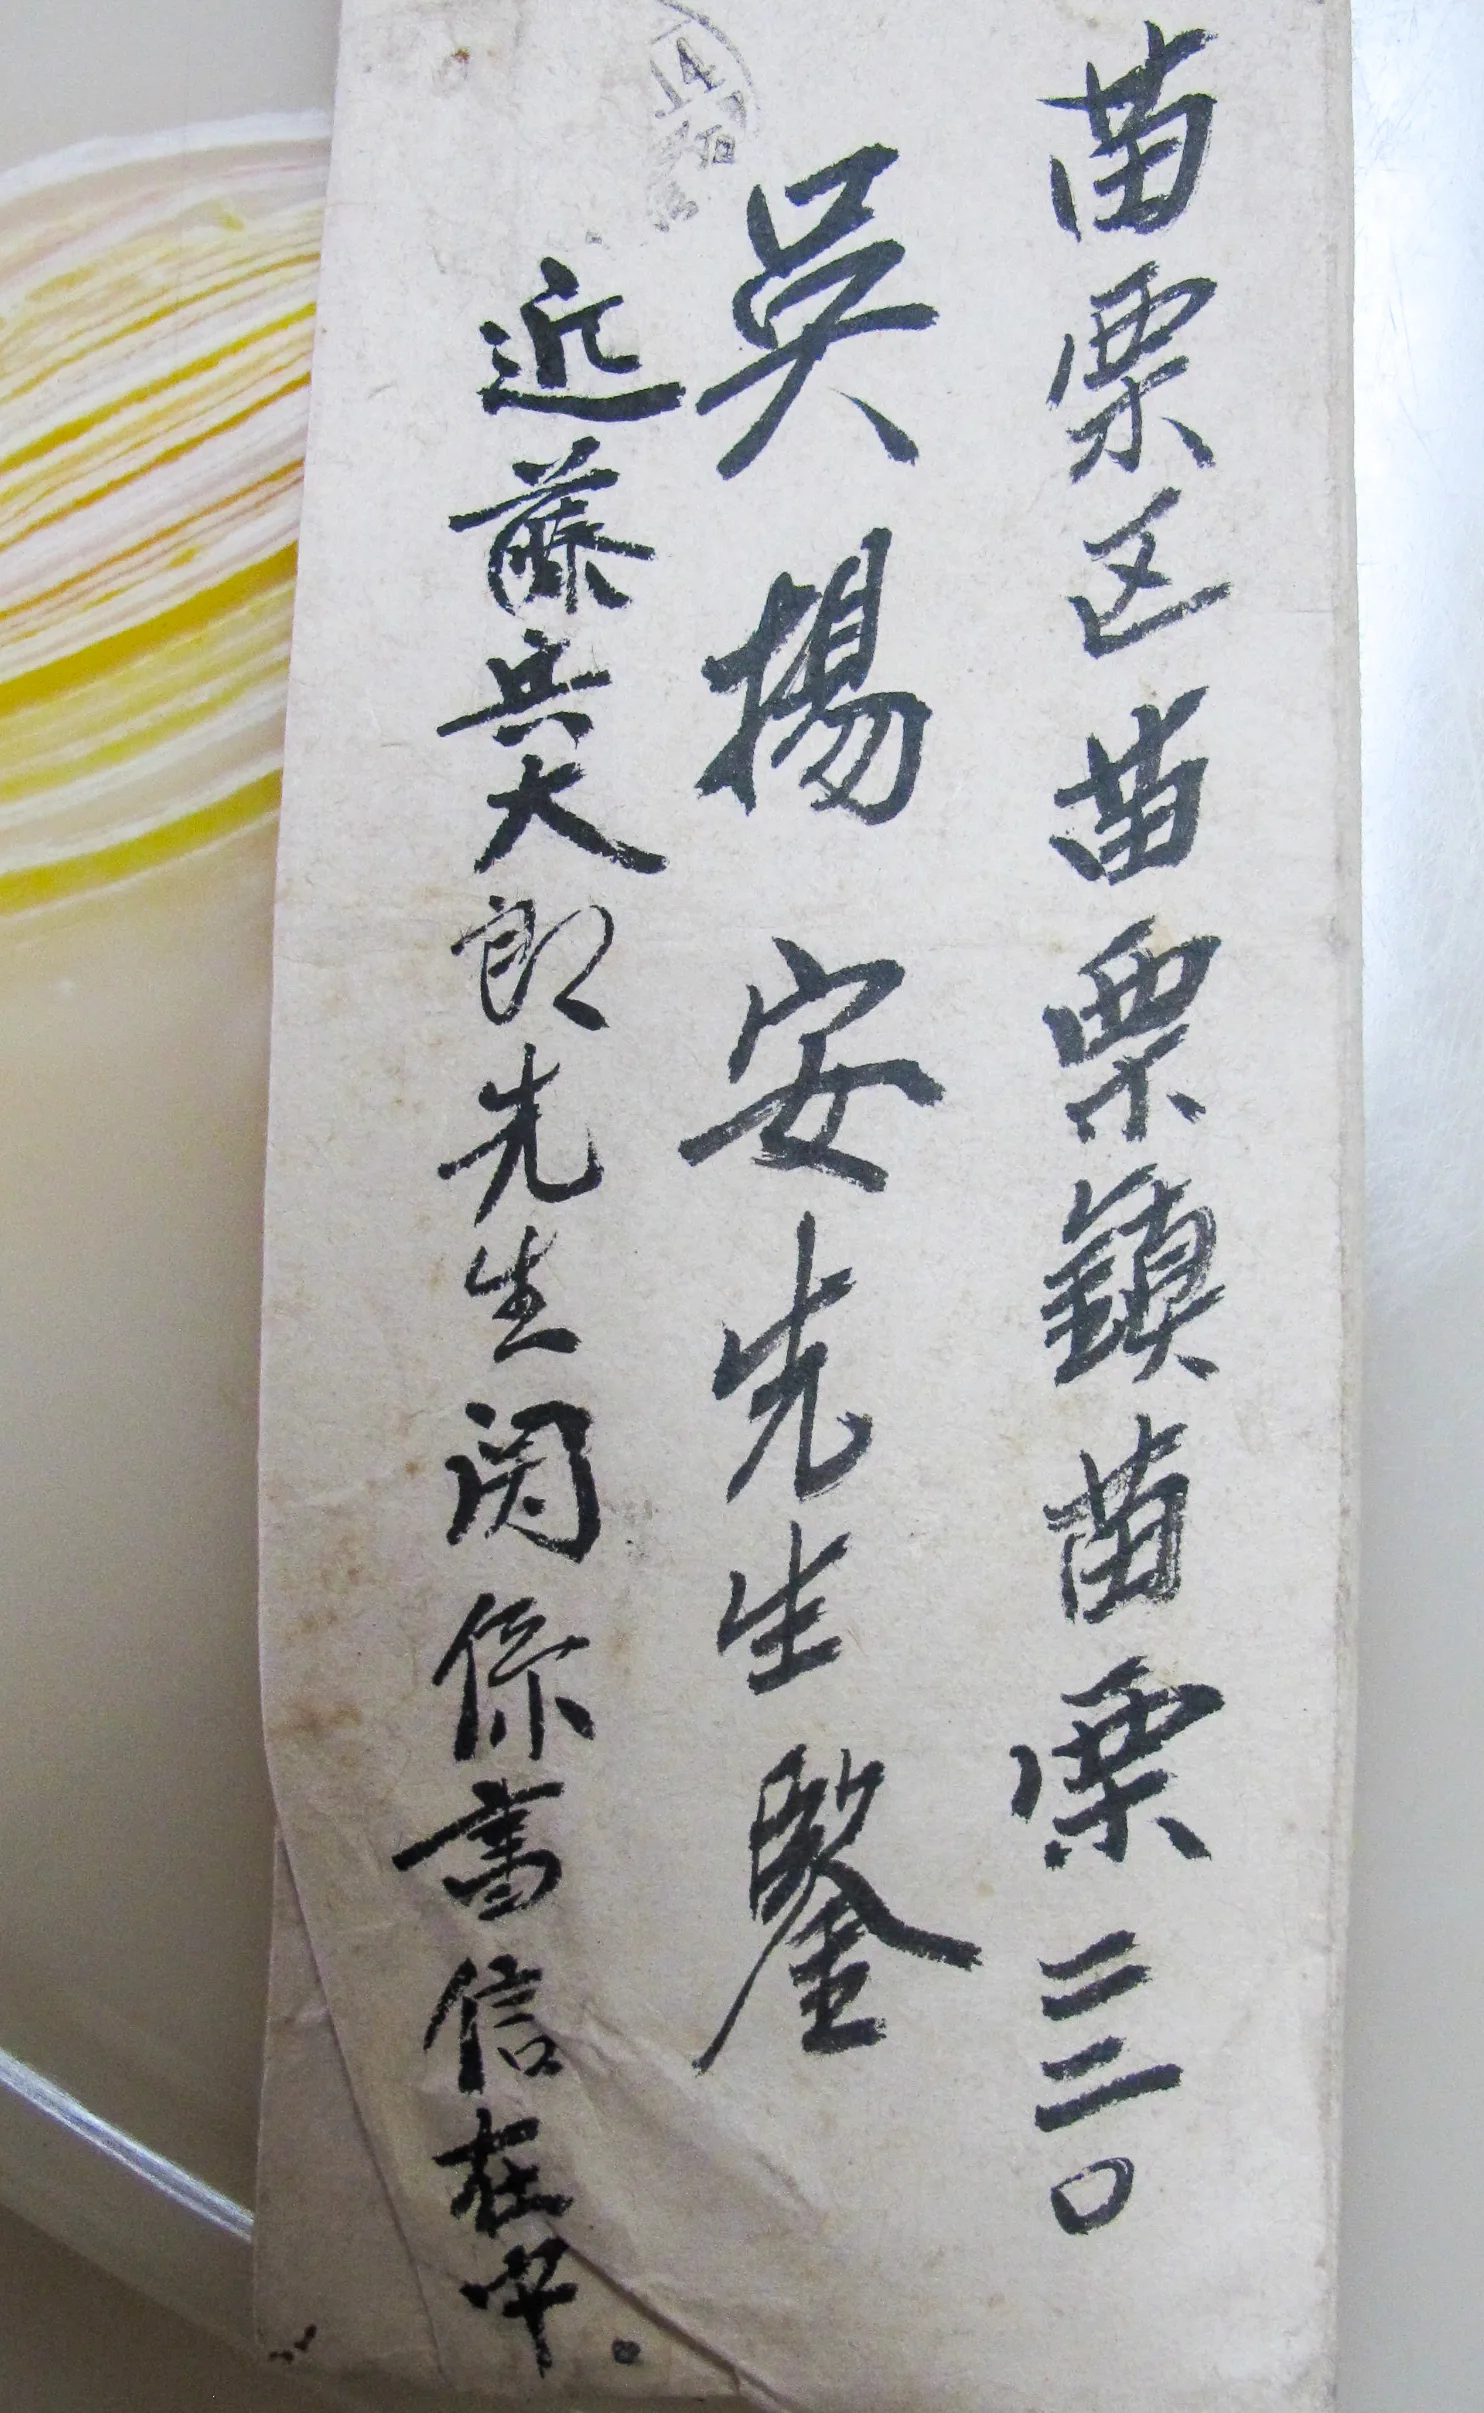 苗栗区苗栗鎮苗栗二二〇
吳揚安先生鑒
近藤兵太郎先生関係書信在中。
14